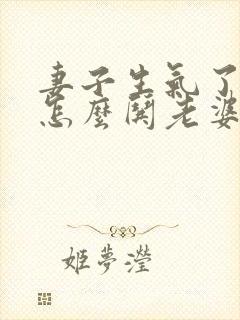 妻子生氣了
怎麼鬨老婆
姬夢瀅